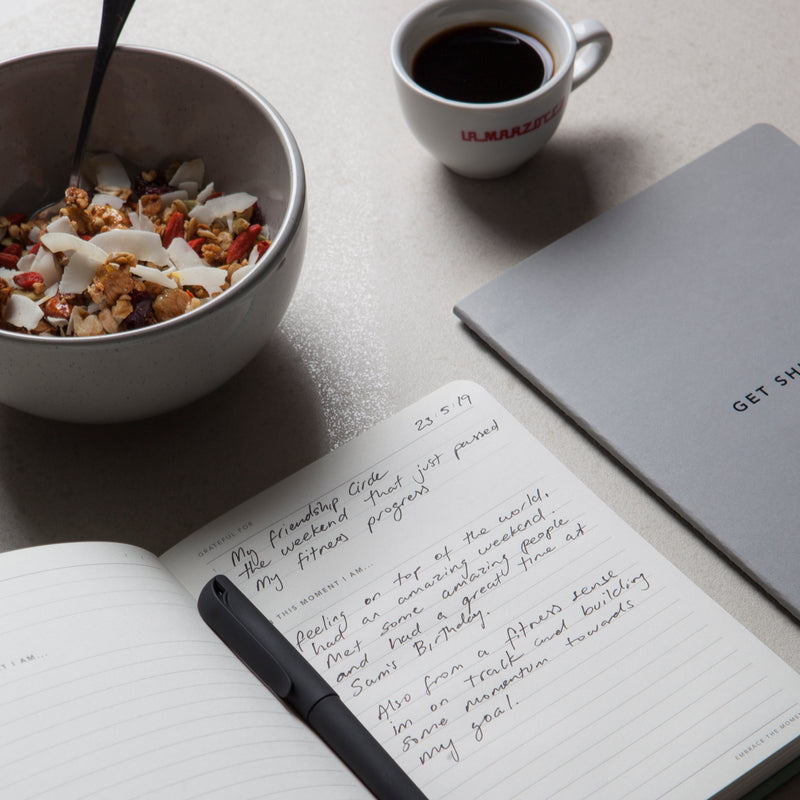 LA MARZOCCO
GET SHI
23/5/19
GRATEFUL FOR
My friendship Circle
the weekend that just passed
My fitness progress
THIS MOMENT I AM...
feeling on top of the world,
had an amazing weekend.
Met some amazing people
and had a great time at
Sam's Birthday.
Also from a fitness sense
im on track and building
some momentum towards
my goal.
EMBRACE THE MOMEN
T I AM...